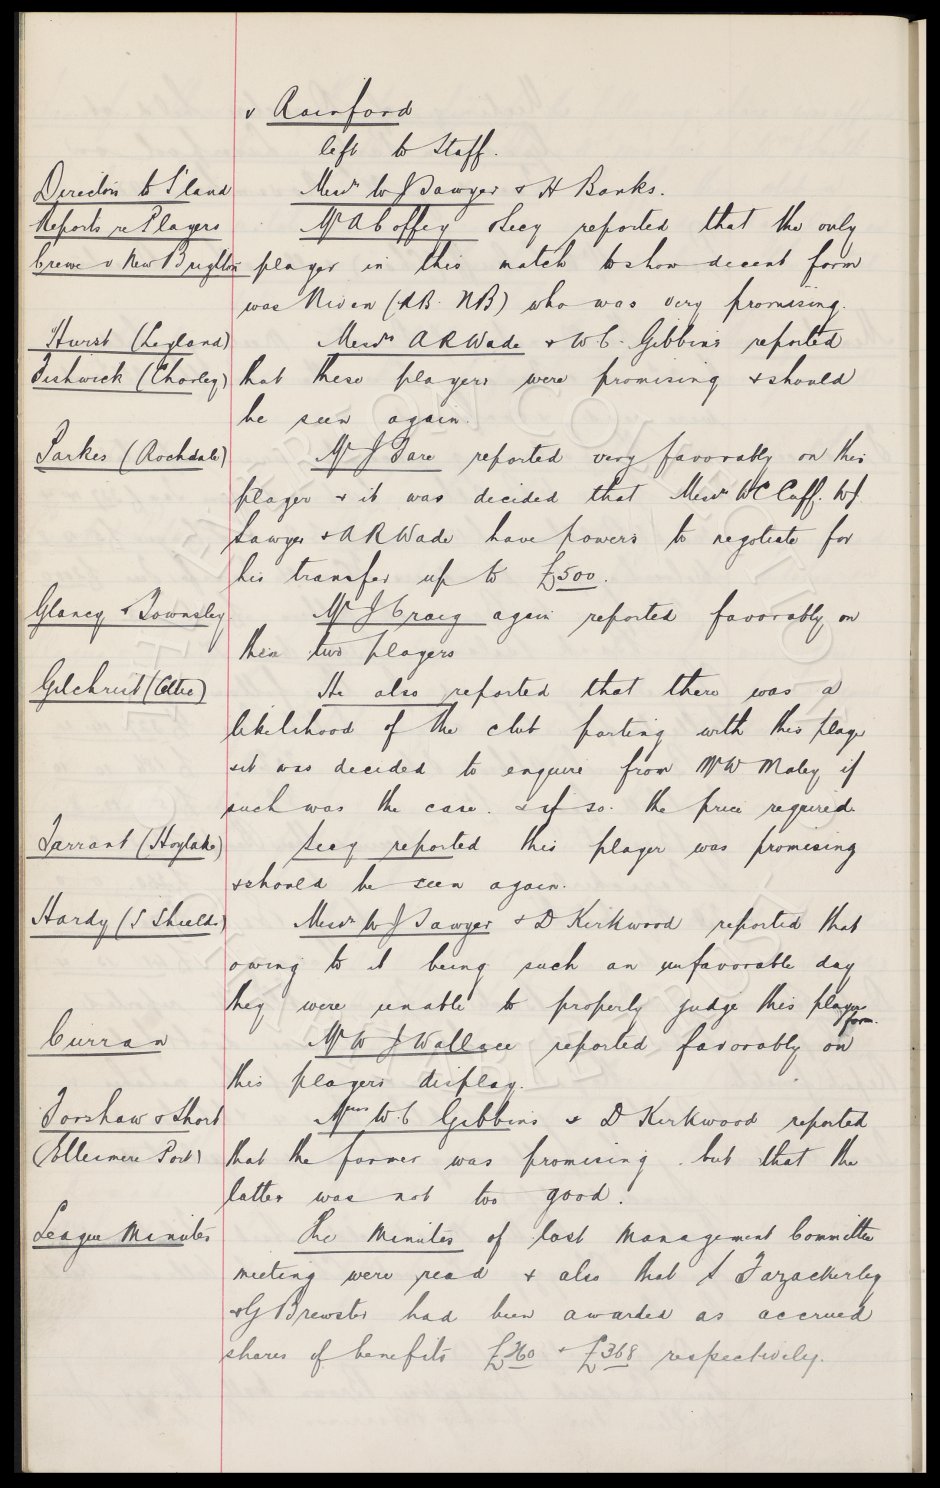 v Rainford
left to Staff.
Directors to S'land Messrs W J Sawyer & H Banks.
Reports re Players Mr A Coffey & Secy reported that the only
Crewe v New Brighton player in this match to show decent form
was Niven (RB. NB) who was very promising.
Hurst (Leyland) Messrs A R Wade & W C. Gibbins reported
Fishwick (Chorley) that these players were promising & should
be seen again.
Parkes (Rochdale) Mr J Fare reported very favorably on this
player & it was decided that Messrs W C Cuff. W J.
Sawyer & A R Wade have powers to negotiate for
his transfer up to £500.
Glancy & Townsley Mr J Craig again reported favorably on
these two players
Gilchrist (Celtic) He also reported that there was a
likelihood of the club parting with this player
& it was decided to enquire from Mr W Maley if
such was the case. & if so. the price required.
Tarrant (Hoylake) Secy reported this player was promising
& should be seen again.
Hardy (S Shields) Messrs W J Sawyer & D Kirkwood reported that
owing to it being such an unfavorable day
they were unable to properly judge this players
form.
Curran Mr W J Wallace reported favorably on
this players display.
Forshaw & Short Messrs W. C Gibbins & D Kirkwood reported
(Ellesmere Port) that the former was promising but that the
latter was not too good.
League Minutes The Minutes of last Management Committee
meeting were read & also that S Fazackerley
& G Brewster had been awarded as accrued
shares of benefits £260 & £368 respectively.